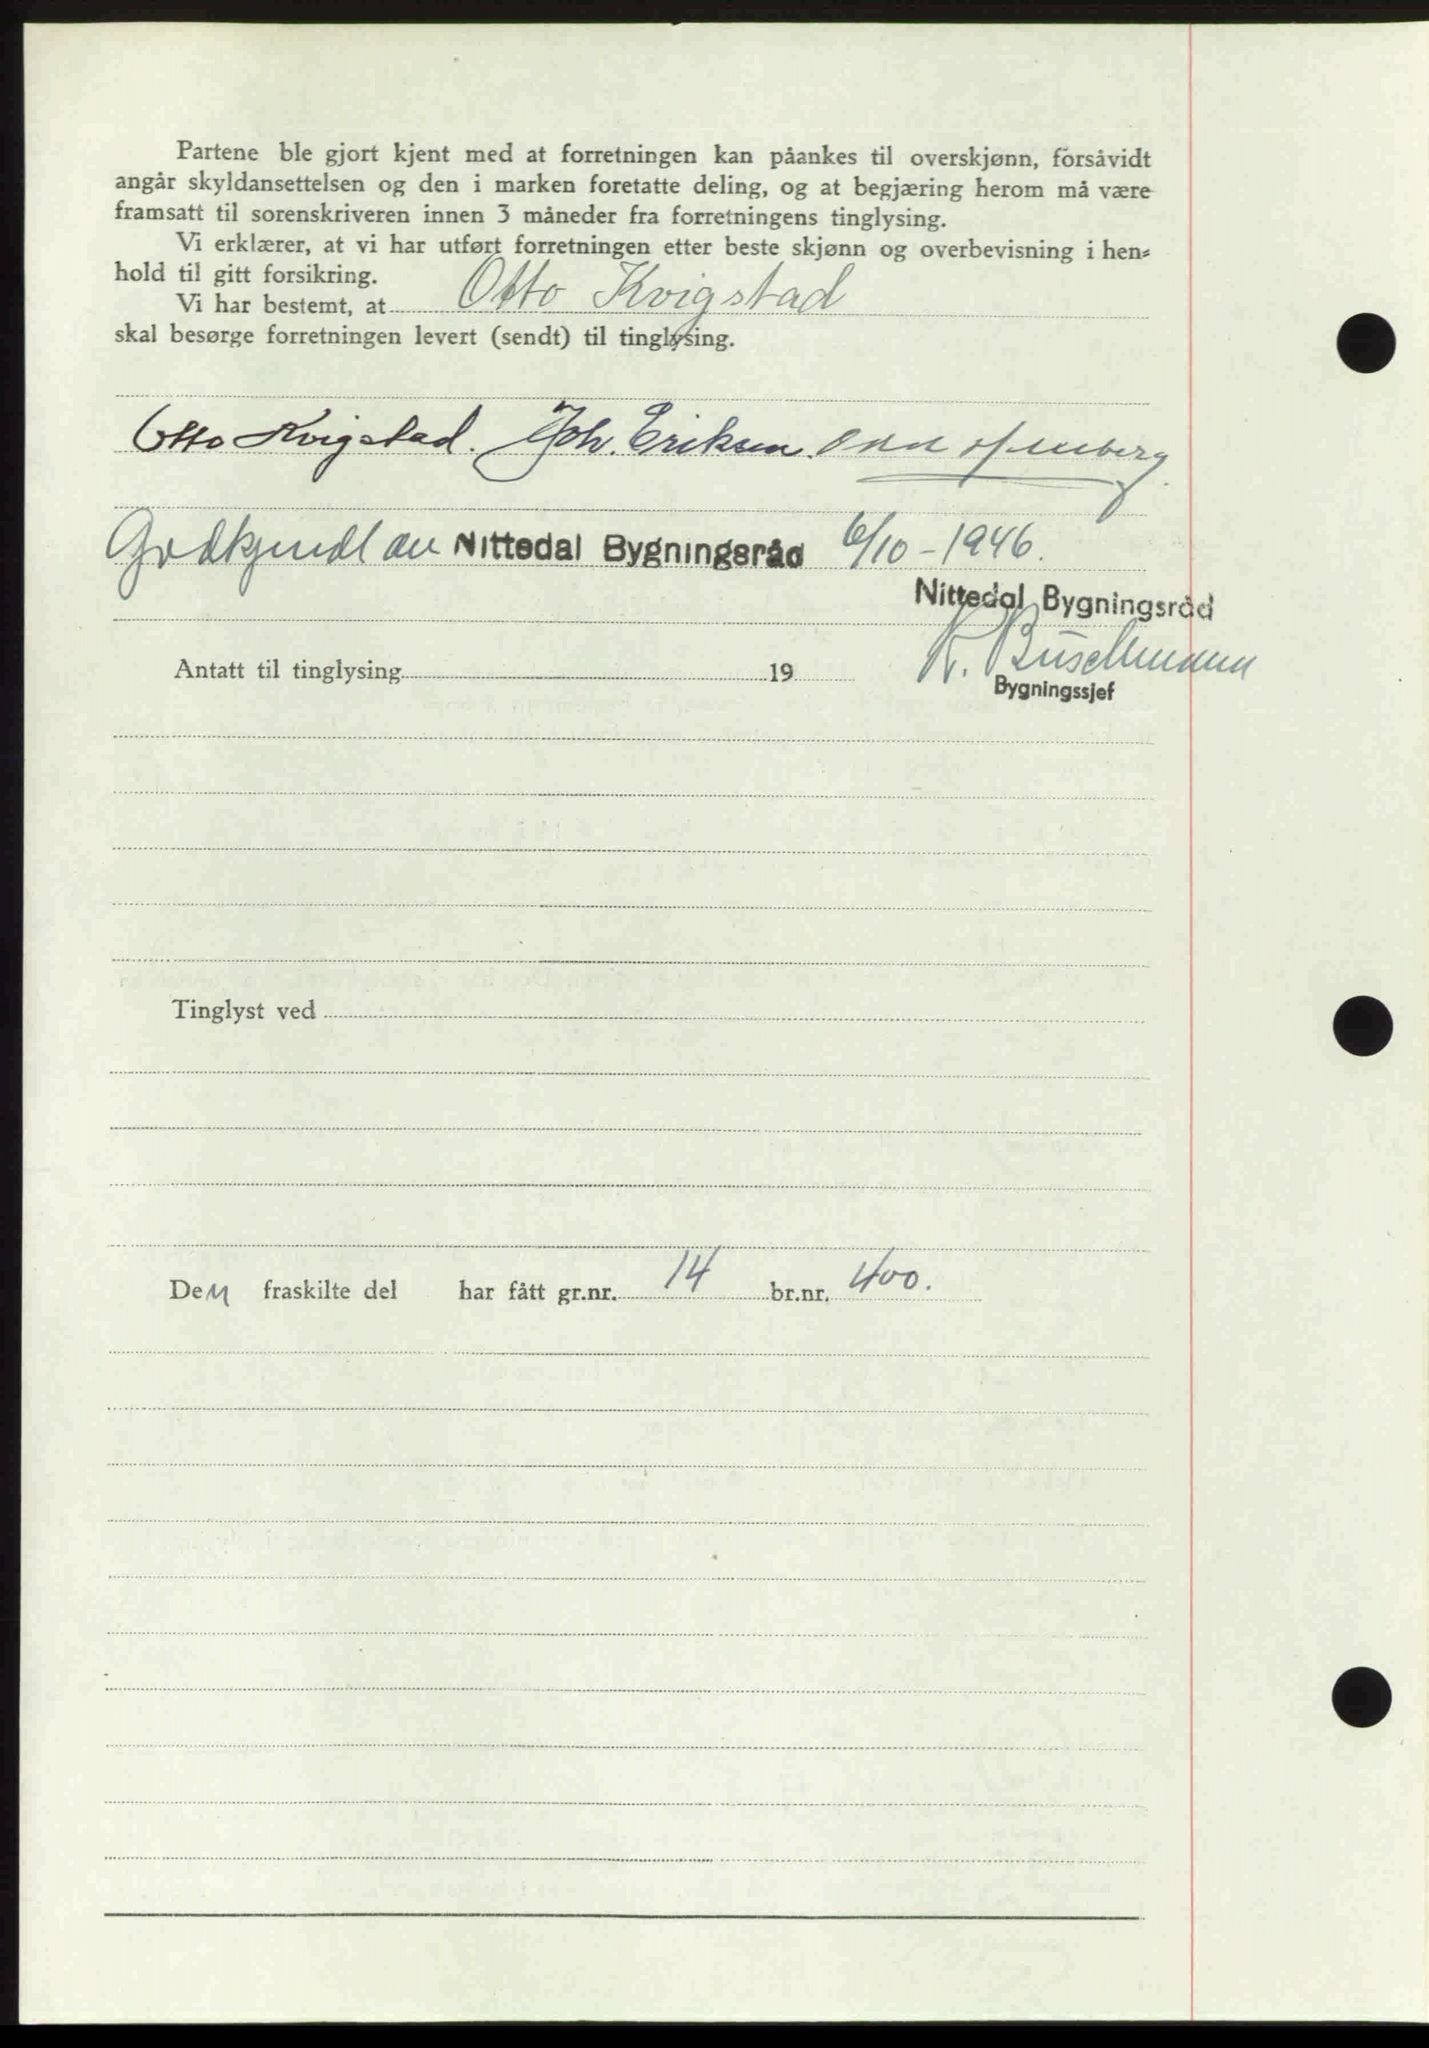 Partene ble gjort kjent med at forretningen kan påankes til overskjønn, forsåvidt
angår skyldansettelsen og den i marken foretatte deling, og at begjæring herom må være
framsatt til sorenskriveren innen 3 måneder fra forretningens tinglysing.
Vi erklærer, at vi har utført forretningen etter beste skjønn og overbevisning i hen-
hold til gitt forsikring.
Vi har bestemt, at Otto Kvigstad
skal besørge forretningen levert (sendt) til tinglysing.
Otto Kvigstad. Joh. Eriksen.
Godkjendt av Nittedal Bygningsråd 6/10-1946.
Nittedal Bygningsråd
K. Buschmann
Antatt til tinglysing 19
Bygningssjef
Tinglyst ved
Den fraskilte del har fått gr.nr. 14 br.nr. 400.